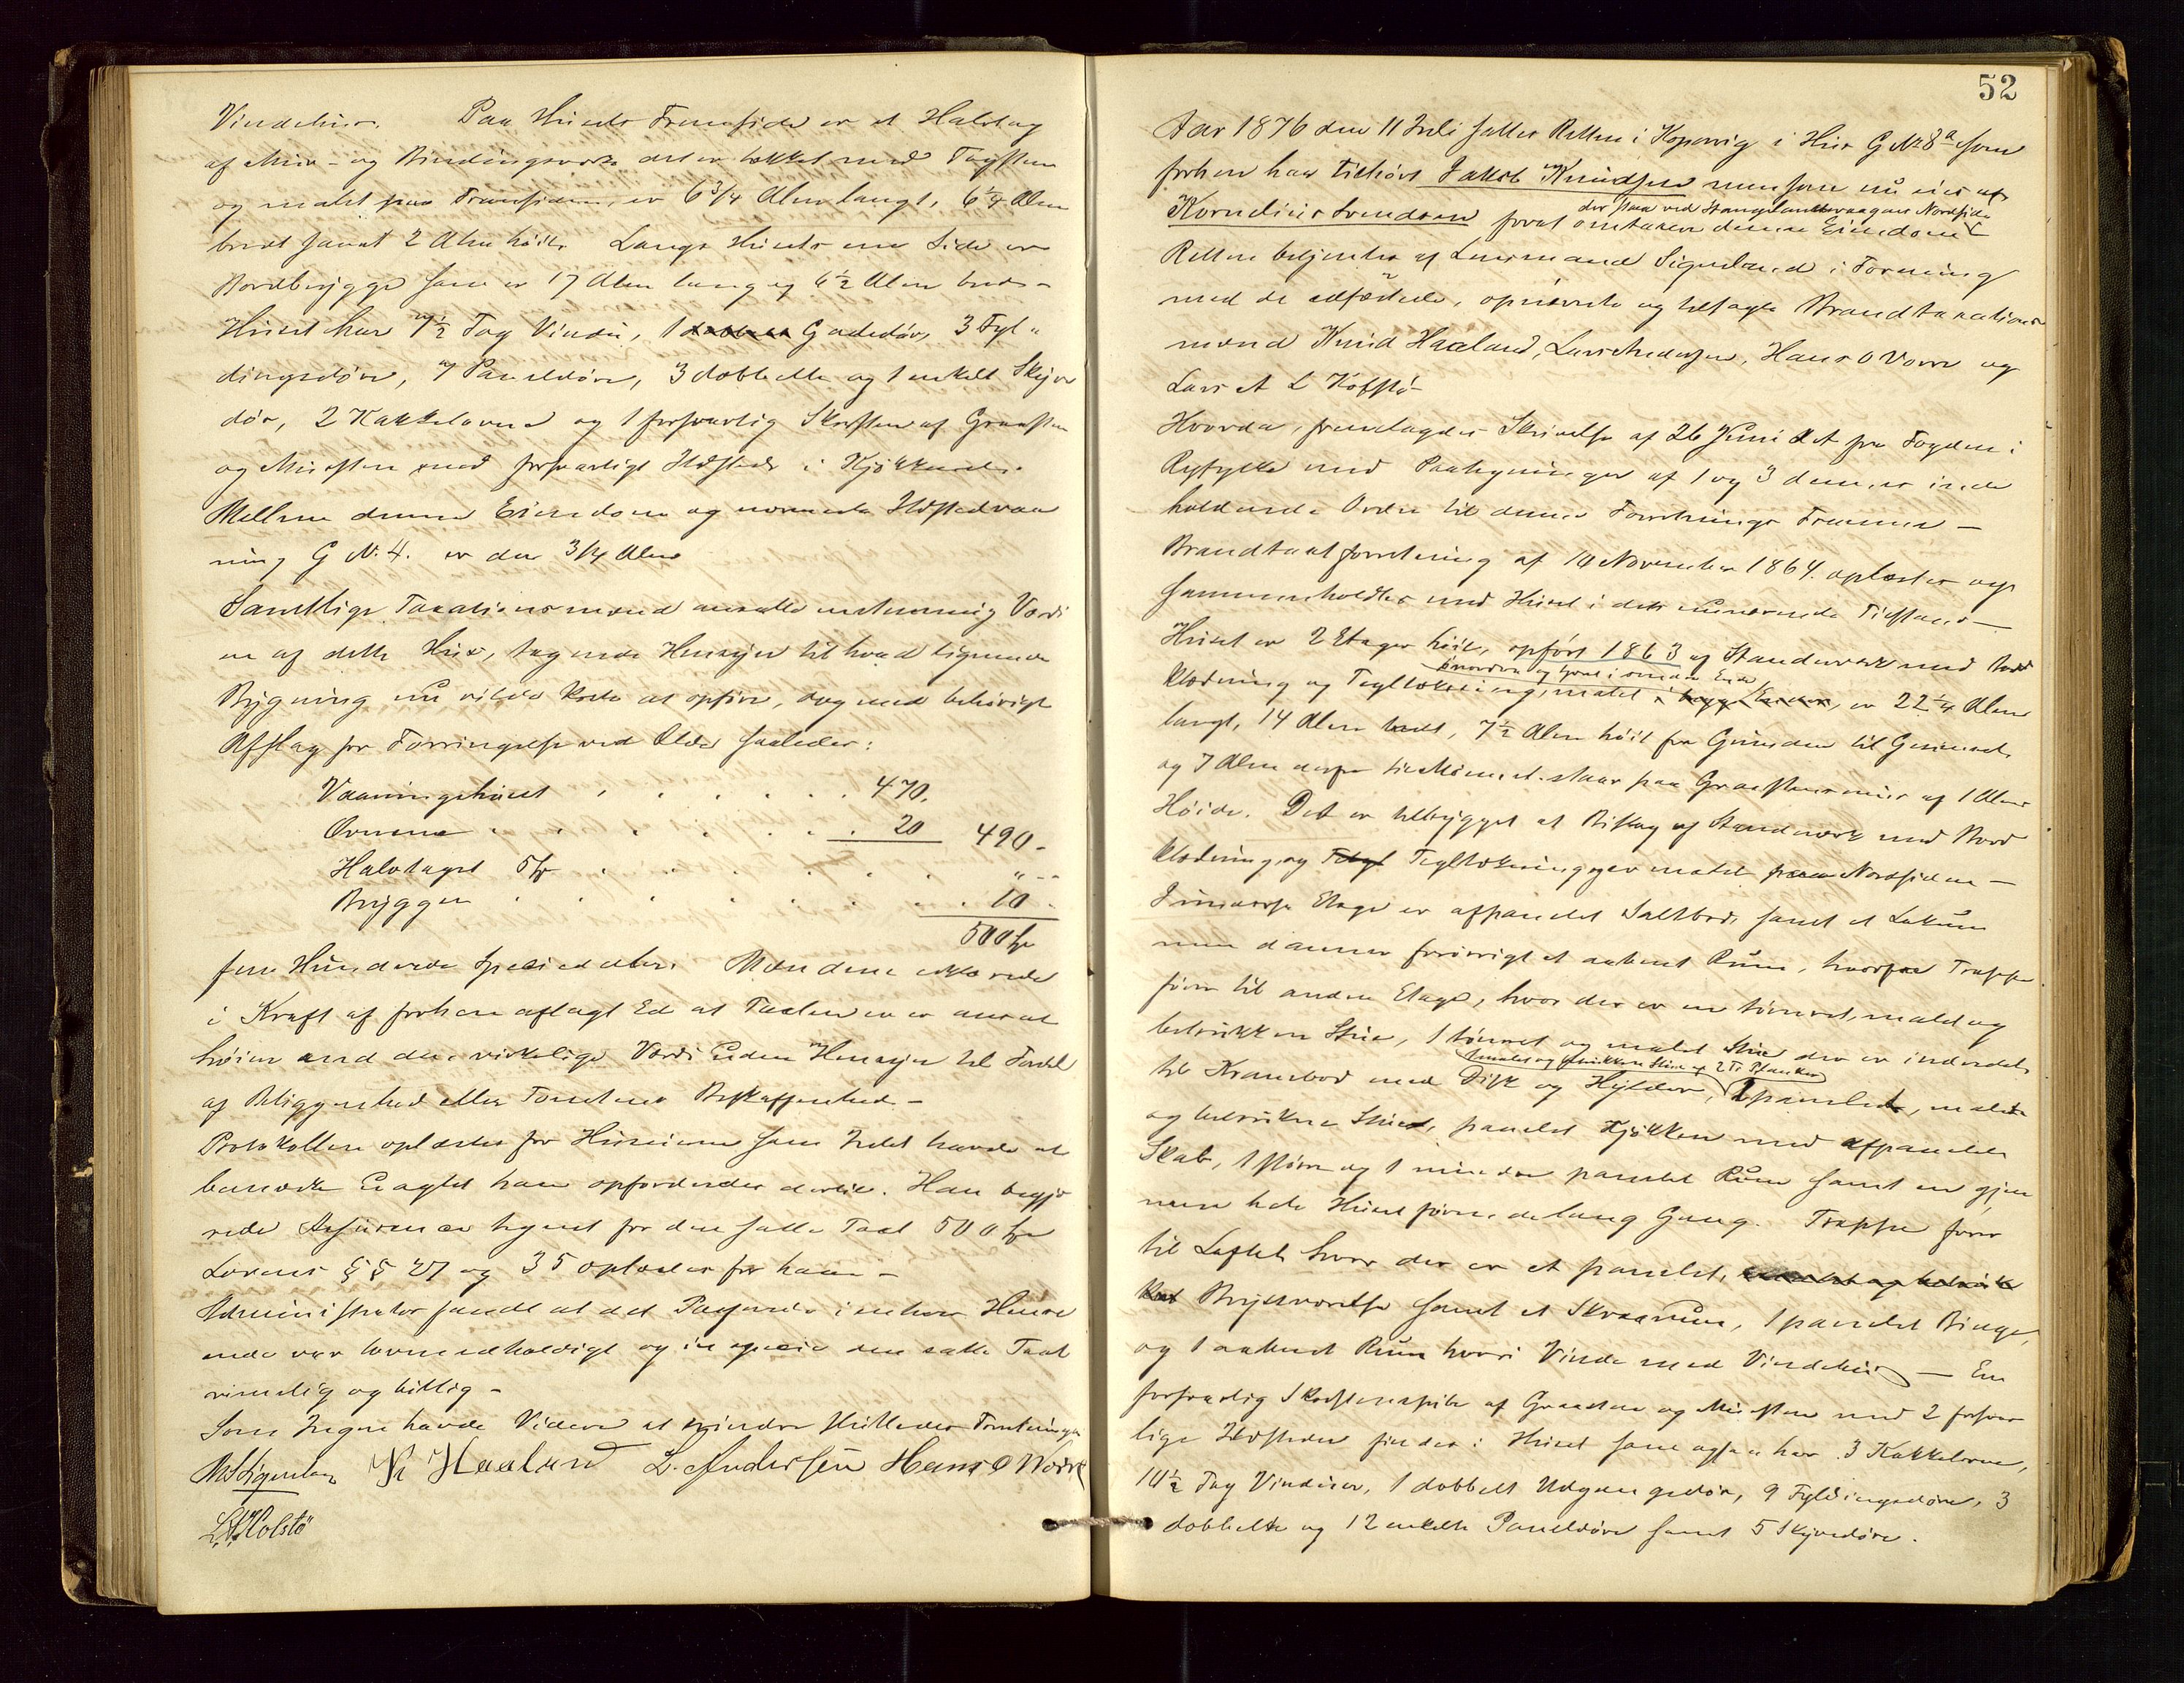 Vindehus. Paa Husets Fremside er et Halvtag
af Mur- og Bindingsværk det er tækket med Tagsten
og malet paa Fremsiden, er 6 3/4 Alen langt, 6 1/4 Alen
bredt samt 2 Alen høit. Langs Husets ene Side er
Bordbrygge som er 17 Alen lang og 6 1/2 Alen bred -
Huset har 7 1/2 Fag Vindu, 1 Gadedør, 3 Fyl-
dingsdøre, 7 Paneldøre, 3 dobbelte og 1 enkelt Skyve
dør, 2 Kakkelovne og 1 forsvarlig Skorsten af Graasten
og Mursten med forsvarligt Ildsted i Kjøkkenet.
Mellem denne Eiendom og nærmeste Ildstedvaa
ning G N. 4. er der 3/4 Alen
Samtlige Taxationsmænd ansatte enstemmig Værdi
en af dette Hus, tagende Hensyn til hvad lignende
Bygning nu vilde koste at opføre, dog med behørigt
Afslag for Forringelse ved Ælde saaledes:
Vaaningshuset . . . . . . 470.
Ovnene . . . . . . 20 490 -
Halvtaget 5 Sp . . . . . " --
Bryggen . . . . . . 10 -
500 Sp
fem Hundrede Speciedaler. Mændene erklærede
i Kraft af forhen aflagt Ed at Taxten ei er ansat
høiere end den virkelige Værdi uden Hensyn til Fordel
af Beliggenhed eller Tomtens Beskaffenhed -
Protokollen oplæstes for Huseieren som Intet havde at
bemærke uagtet han opfordredes dertil. Han begjæ
rede Assurance tegnet for den satte Taxt 500 Sp
Lovens §§ 27 og 35 oplæstes for ham -
Administrator fandt at det Passerede i enhver Hense
ende var lovmedholdigt og in specie den satte Taxt
rimelig og billig -
Som Ingen havde Videre at erindre sluttedes Forretningen
Kn Haaland L. Andersen Hans O Vorre
L. A. Holstø
52
Aar 1876 den 11 Juli sattes Retten i Kopervig i Hus G No 8a som
forhen har tilhørt Jakob Knudsen men som nu eies af
der staa ved Stangelandsvaagens Nordside
Kornelius Svendsen forat omtaxere denne Eiendom
Retten betjentes af Lensmand Sigenstad i Forening
med de edfæstede, opnævnte og tilsagte Brandtaxations
mænd Knud Haaland, Lars Andersen, Hans O Vorre og
Lars A L Holstø
Hvorda fremlagdes Skrivelse af 26 Juni d A fra Fogden i
Ryfylke med Paategninger af 1 og 3 dennes inde
holdende Ordre til denne Forretnings Fremme -
Brandtaxtforretning af 10 November 1864. oplæstes og
sammenholdtes med Huset i dets nuværende Tilstand -
Huset er 2 Etager høit, opført 1863 af Standværk med Bord
i nordre og Gavl i søndre Ende
klædning og Tegltækning, malet i begge Ender, er 22 1/4 Alen
langt, 14 Alen bredt, 7 1/2 Alen høit fra Grunden til Gesimset
og 7 Alen derfra til Mønnet. staar paa Graastensmur af 1 Alens
Høide. Det er tilbygget et Bislag af Standværk med Bord
klædning, og Tegltækning og er malet paa Nordsiden -
I underste Etage er afpanelet Saltbod samt et Lokum
men danner forøvrigt et aabent Rum, hvorfra Trappe
fører til anden Etage, hvor der er en tømret, malet og
betrukken Stue, 1 tømret og malet Stue der er inderedet
1 malet og betrukken Stue af 2 T Planker
til Krambod med Disk og Hylder, 2 panelede, malede
og betrukne Stuer, panelet Kjøkken med afpanelet
Skab, 1 større og 1 mindre panelet Rum samt en gjen
nem hele Huset førende lang Gang. Trappe fører
til Loftet hvor der er et panelet,
Brystværelse samt et Skraarum, 1 panelet Binge
og 1 aabent Rum hvori Vinde med Vindehus - En
forsvarlig Skorstenspibe af Graasten og Mursten med 2 forsvar
lige Ildsteder findes i Huset som ogsaa har 3 Kakkelovne,
10 1/2 Fag Vinduer, 1 dobbelt Udgangsdør, 9 Fyldingsdøre, 3
dobbelte og 12 enkelte Paneldøre samt 5 Skyvedøre.